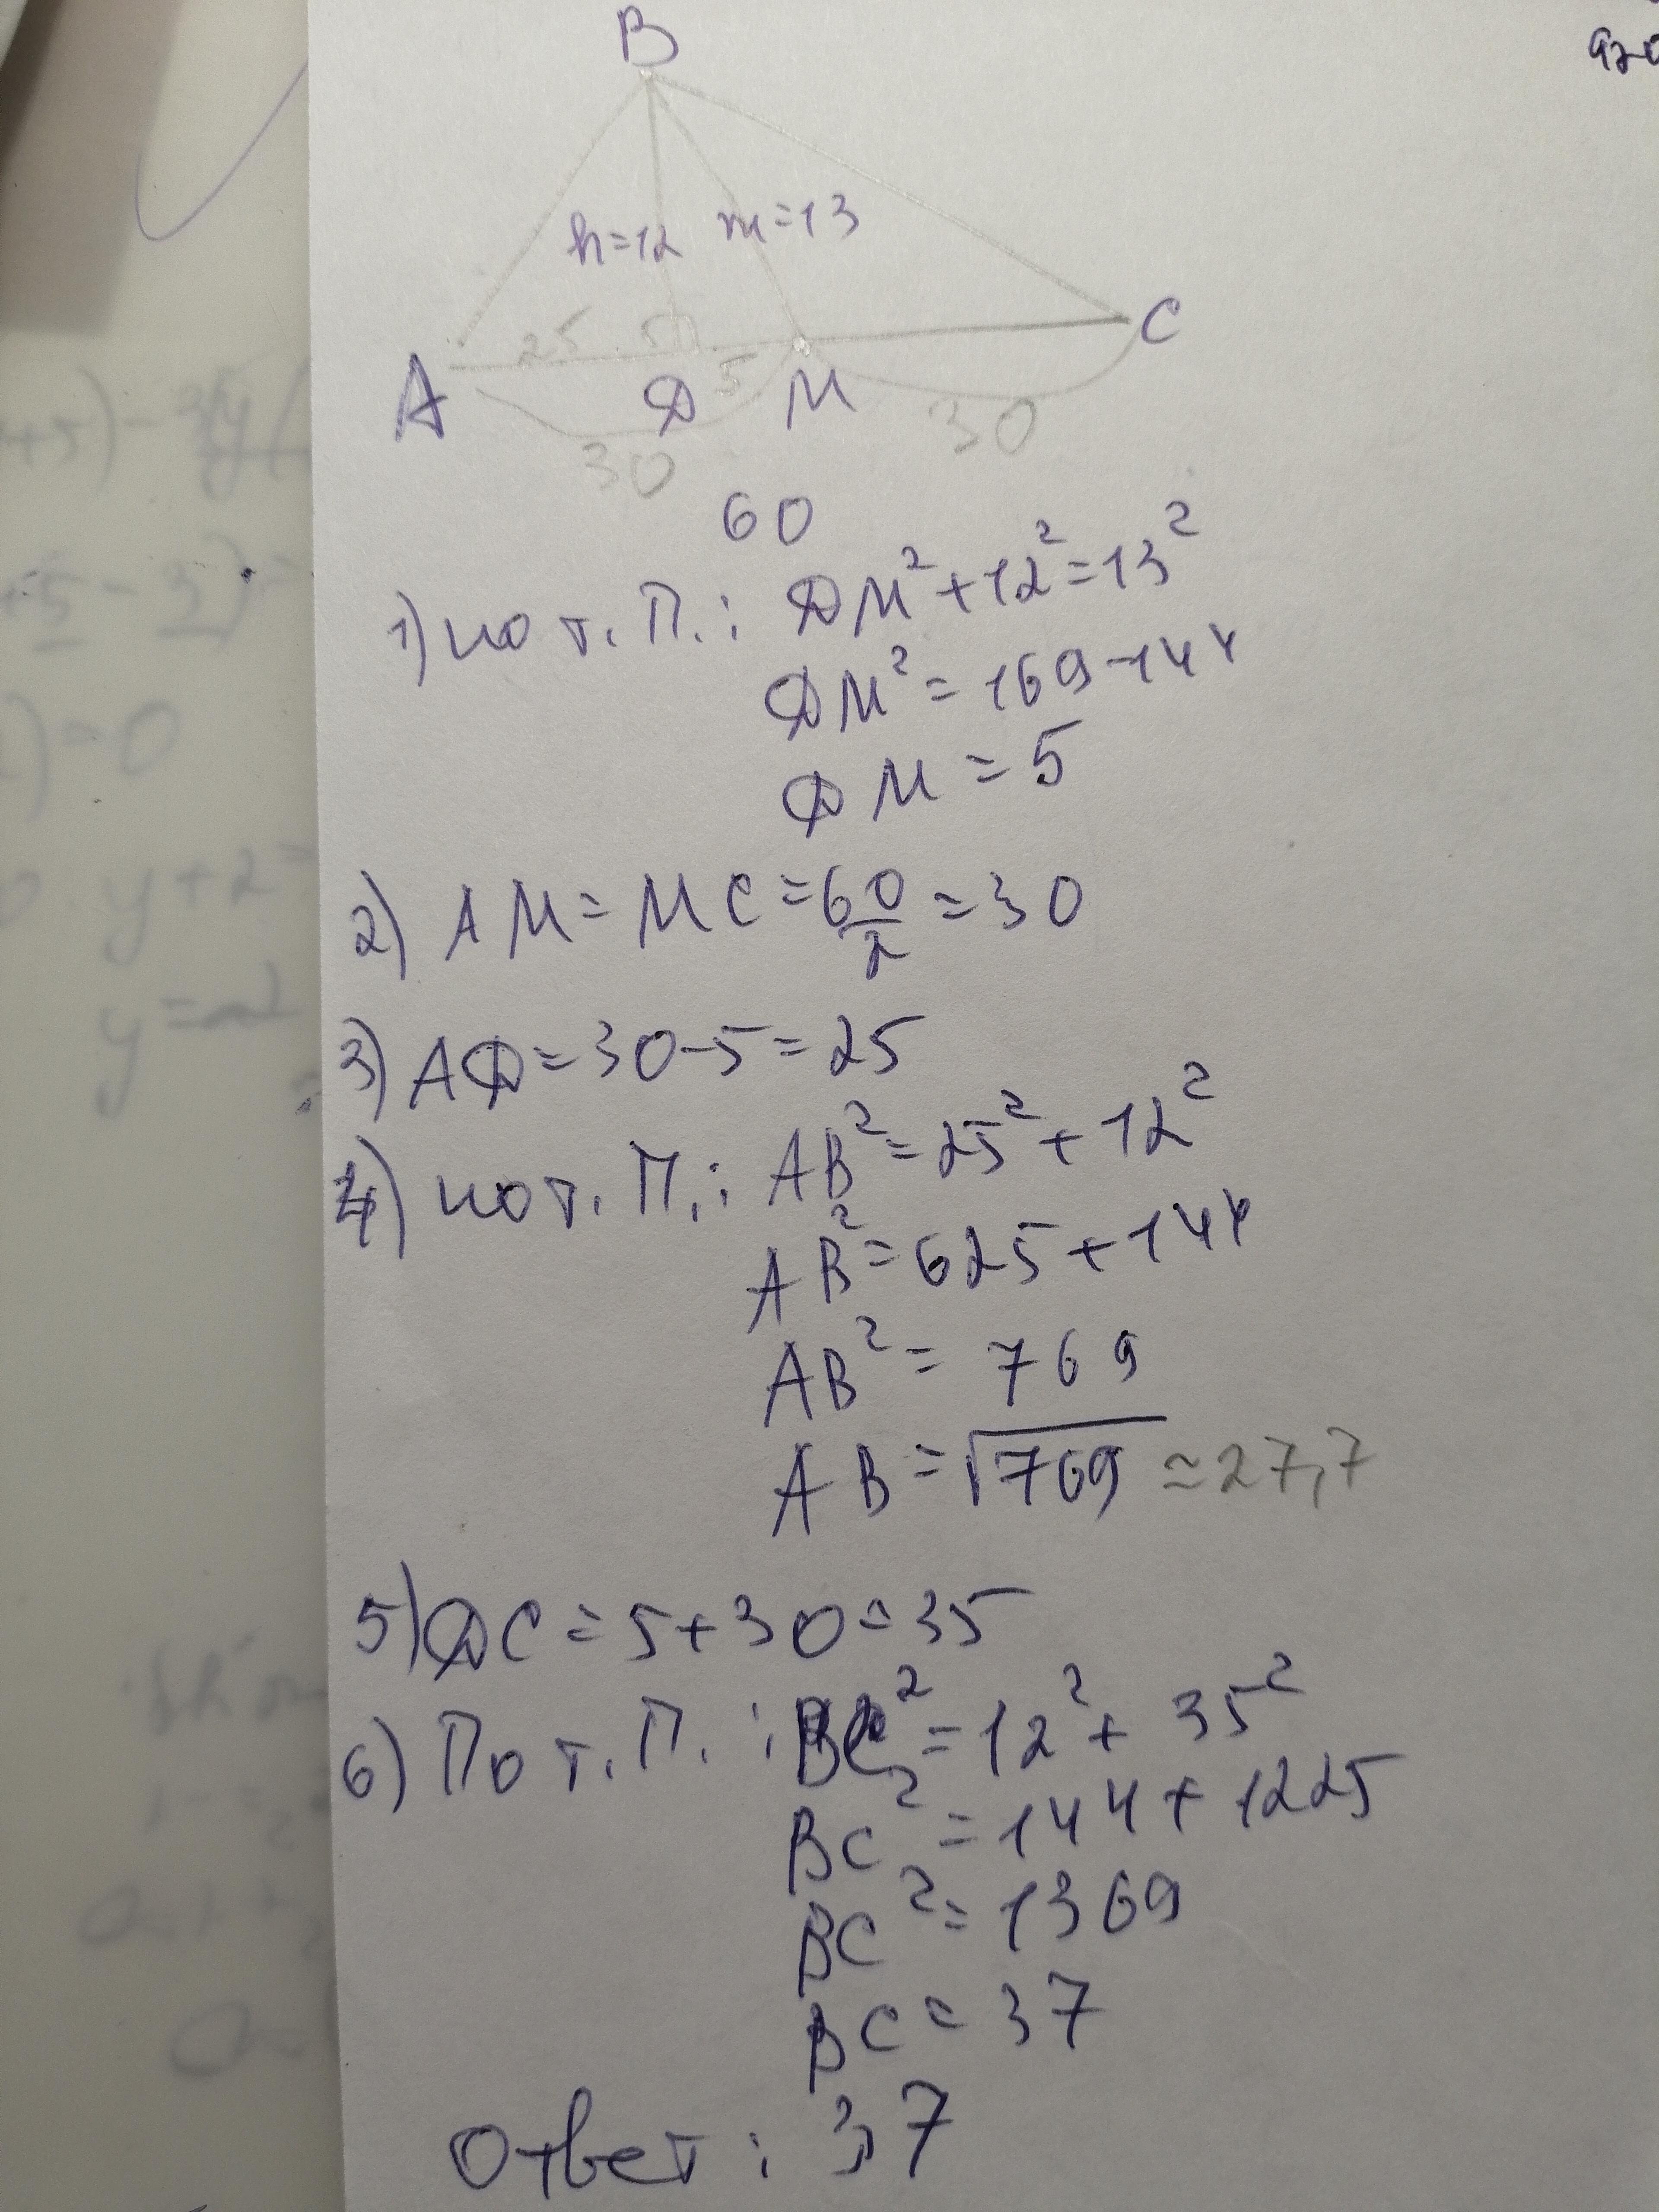 920
B
h=12 m=13
C
25 5
5
A D M
30 30
60
1) по т. П.: DM²+12²=13²
DM²=169-144
DM=5
2) AM=MC=60/2=30
3) AD=30-5=25
4) по т. П.: AB²=25²+12²
AB²=625+144
AB²=769
AB=√769≃27,7
5) DC=5+30=35
6) По т. П.: BC²=12²+35²
BC²=144+1225
BC²=1369
BC=37
Ответ: 37
+5)-3y(
+5-3)
)=0
y+2=
y=-2
=